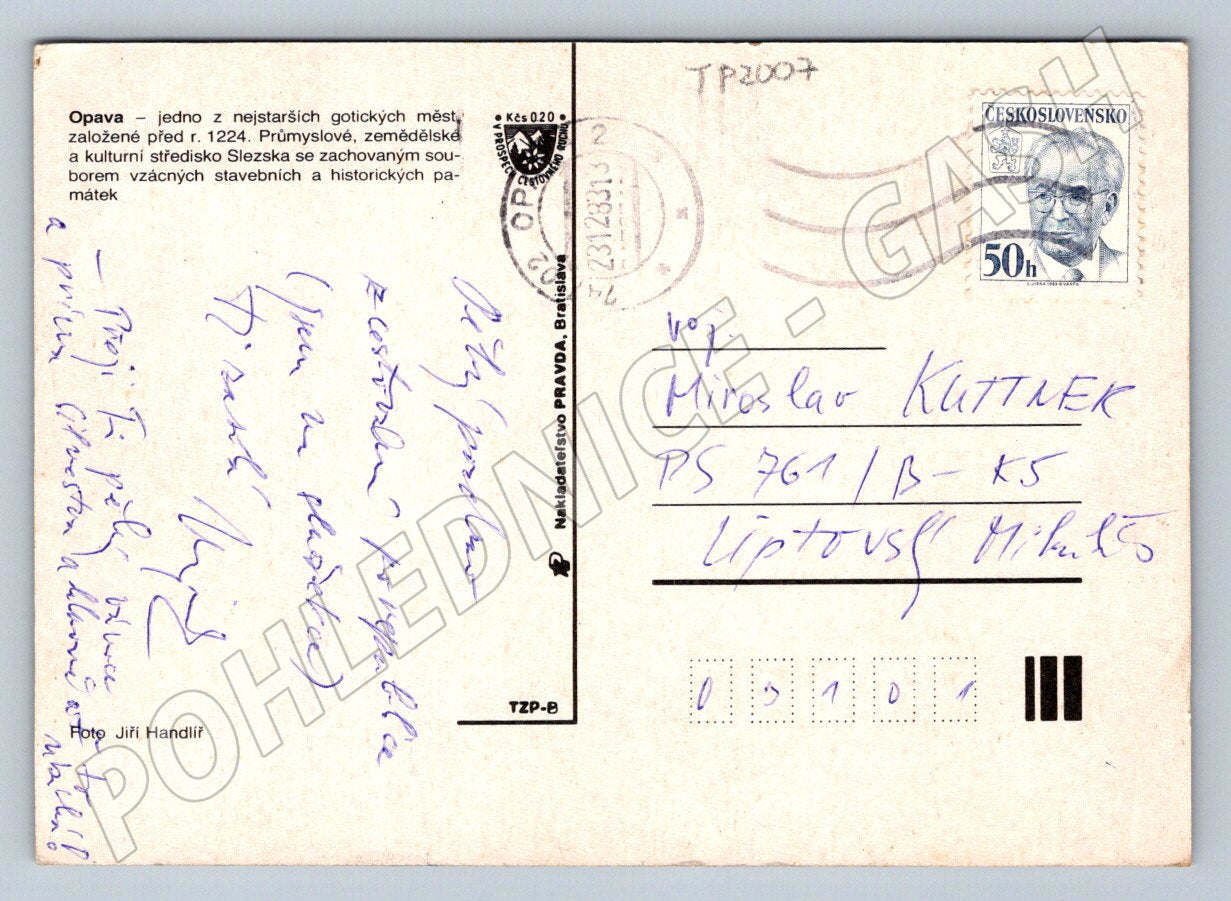 Opava – jedno z nejstarších gotických měst,
založené před r. 1224. Průmyslové, zemědělské
a kulturní středisko Slezska se zachovaným sou-
borem vzácných stavebních a historických pa-
mátek
Kčs 0.20
V PROSPECH CESTOVNÉHO RUCHU
TP2007
ČESKOSLOVENSKO
50h
2
OPAVA
23.12.83.13
voj.
Miroslav KUTTNER
PS 761/B-K5
Liptovský Mikuláš
0 3 1 0 1
pozdrav
z cestování po republice
(jsem na
– Přeji Ti pěkné vánoce
a
Nakladateľstvo PRAVDA, Bratislava
TZP-B
Foto Jiří Handlíř
POHLEDNICE - GASH